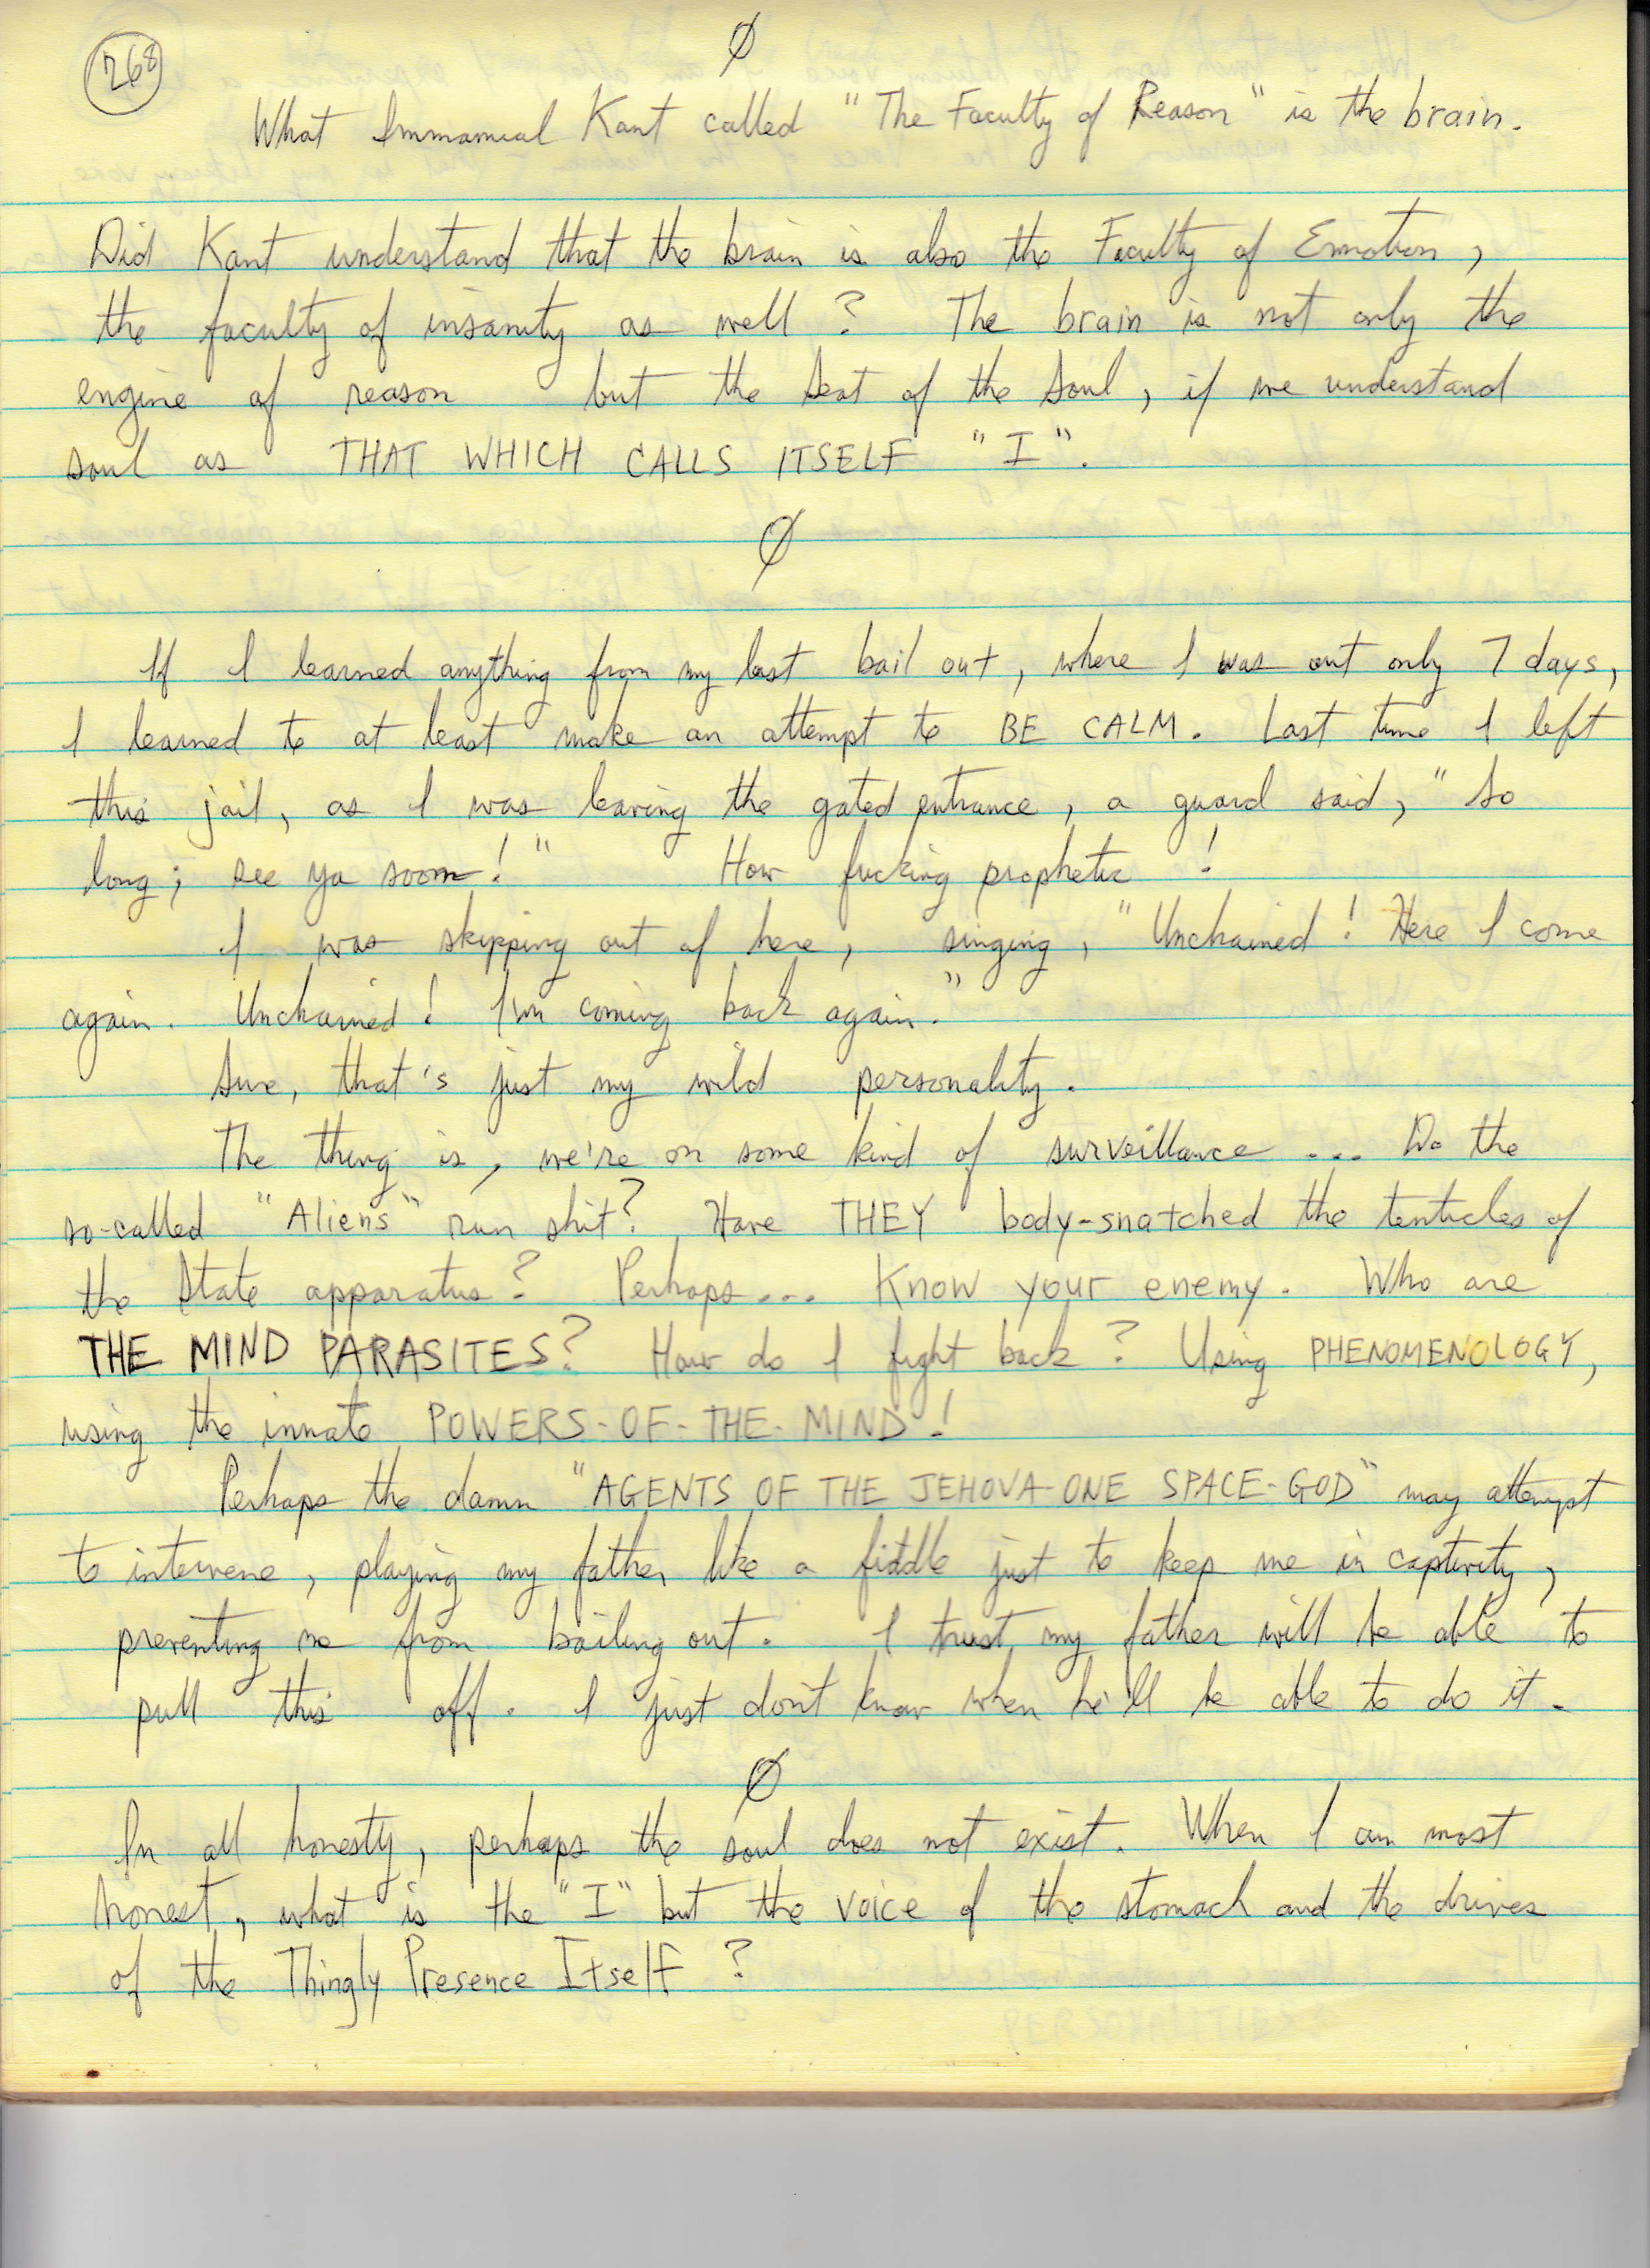 268
Ø
What Immanual Kant called "The Faculty of Reason" is the brain.
Did Kant understand that the brain is also the Faculty of Emotion,
the faculty of insanity as well? The brain is not only the
engine of reason but the seat of the soul, if we understand
soul as THAT WHICH CALLS ITSELF "I".
Ø
If I learned anything from my last bail out, where I was out only 7 days,
I learned to at least make an attempt to BE CALM. Last time I left
this jail, as I was leaving the gated entrance, a guard said, "So
long; see ya soon!" How fucking prophetic!
I was skipping out of here, singing, "Unchained! Here I come
again. Unchained! I'm coming back again."
Sure, that's just my wild personality.
The thing is, we're on some kind of surveillance .... Do the
so-called "Aliens" run shit? Have THEY body-snatched the tenticles of
the State apparatus? Perhaps.... Know your enemy. Who are
THE MIND PARASITES? How do I fight back? Using PHENOMENOLOGY,
using the innate POWERS-OF-THE-MIND!
Perhaps the damn "AGENTS OF THE JEHOVA-ONE SPACE-GOD" may attempt
to intervene, playing my father like a fiddle just to keep me in captivity,
preventing me from bailing out. I trust my father will be able to
pull this off. I just don't know when he'll be able to do it.
Ø
In all honesty, perhaps the soul does not exist. When I am most
honest, what is the "I" but the voice of the stomach and the drives
of the Thingly Presence Itself?